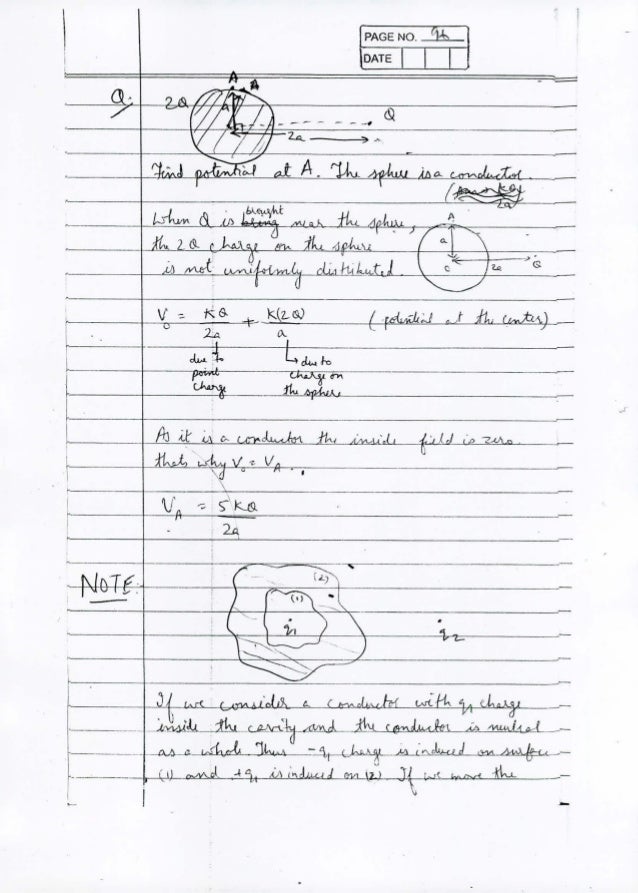 PAGE NO. 96
DATE
Q:
A
A
2Q
a
Q
2a
Find potential at A. The sphere is a conductor.
When Q is brought near the sphere,
the 2Q charge on the sphere
is not uniformly distributed.
A
a
C
2a
Q
V₀ = KQ/2a + K(2Q)/a (potential at the center)
due to point charge
due to charge on the sphere
As it is a conductor the inside field is zero.
thats why V₀ = V_A ..
V_A = 5KQ/2a
NOTE:
(2)
(1)
q₁
q₂
If we consider a conductor with q₁ charge
inside the cavity and the conductor is neutral
as a whole. Thus -q₁ charge is induced on surface
(1) and +q₁ is induced on (2) If we move the